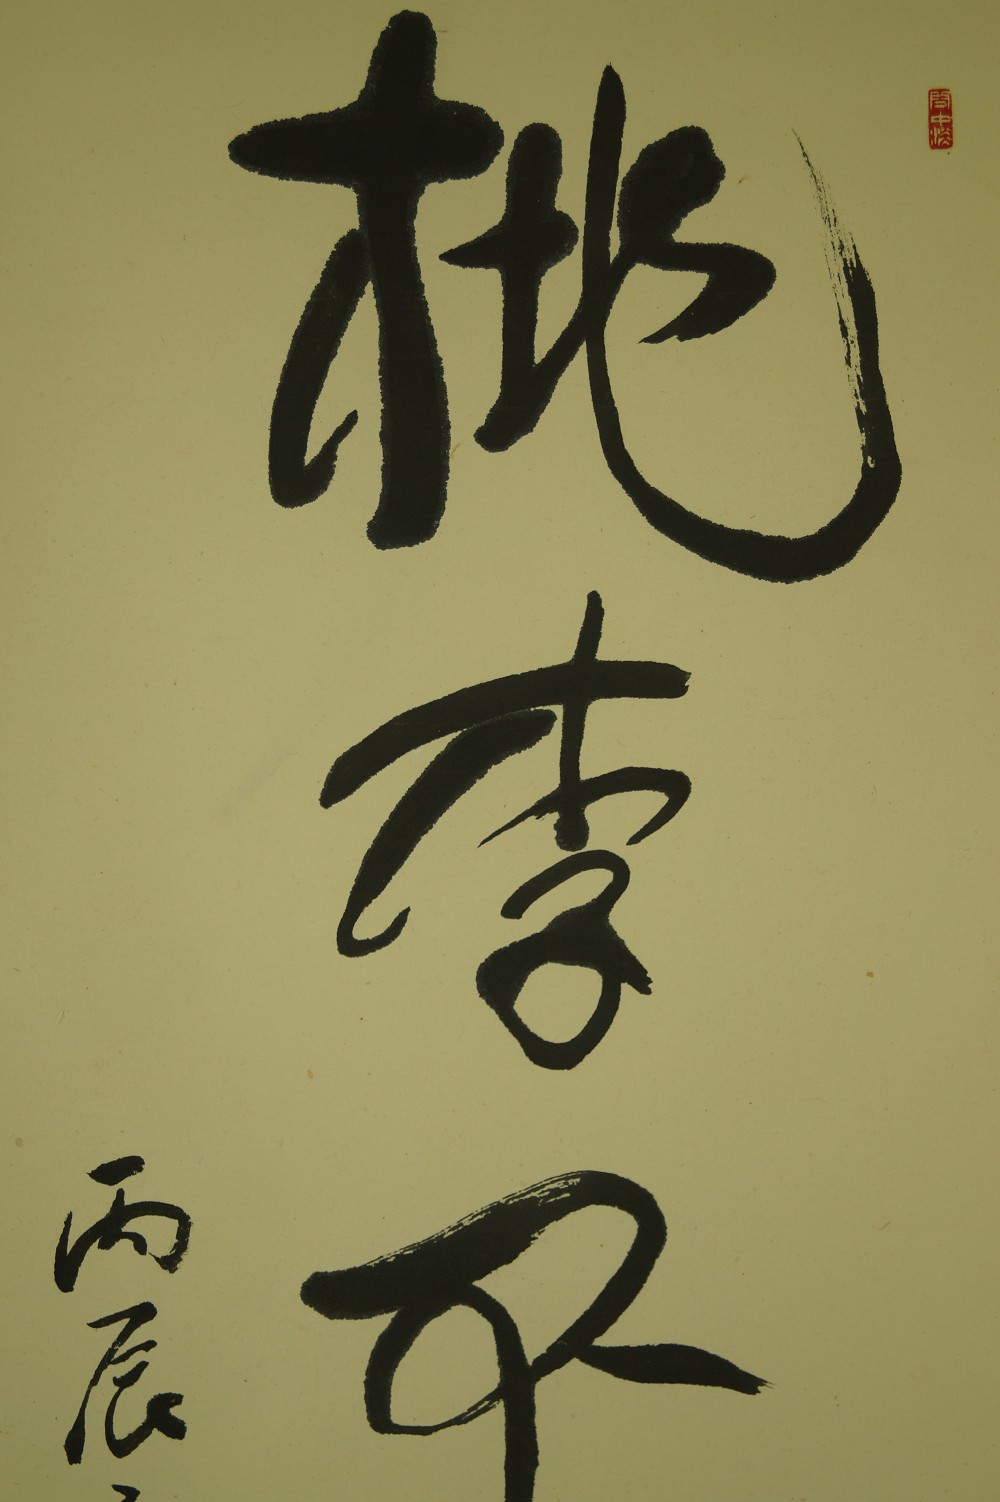 桃李不
丙辰